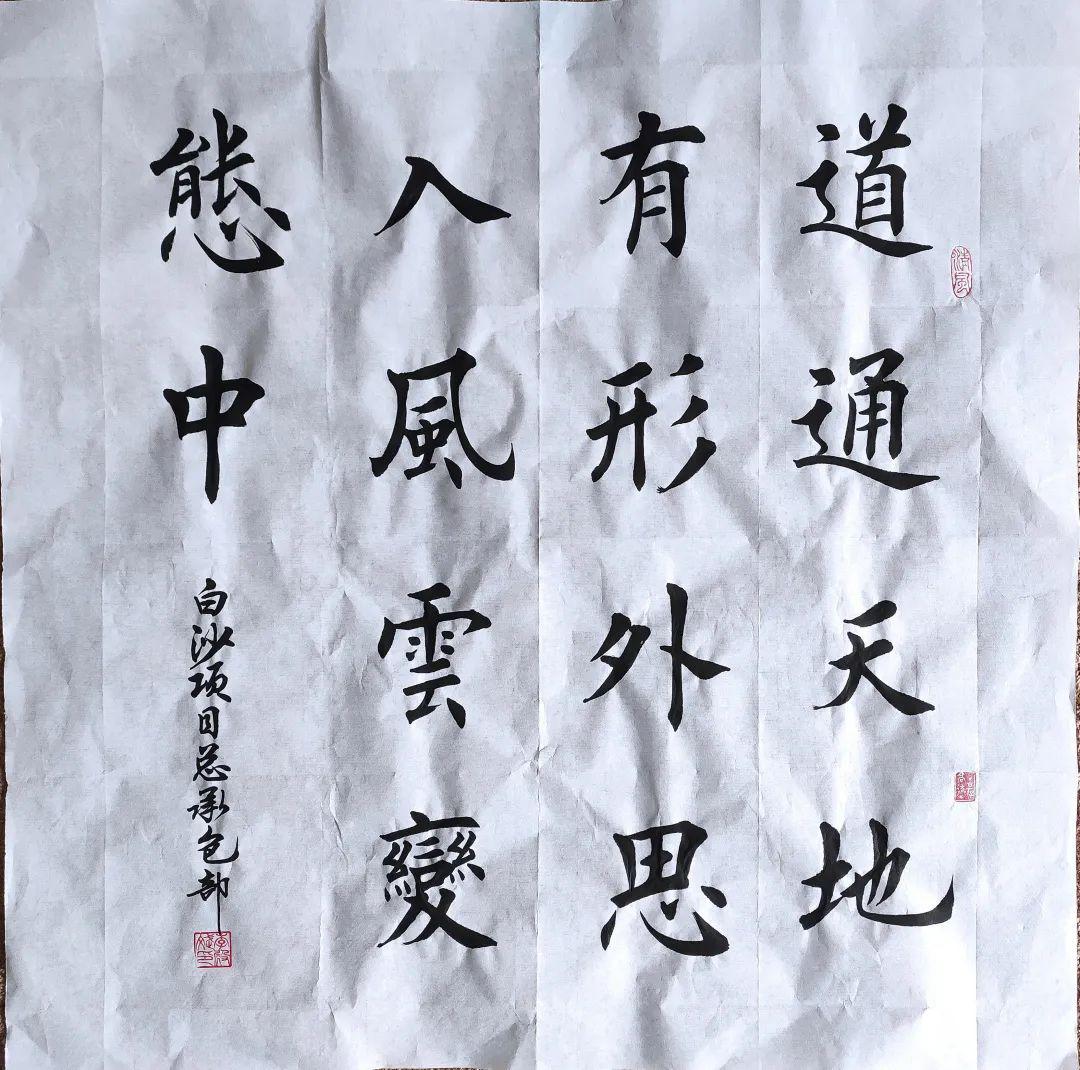 道通天地
有形外思
入風雲變
態中
白沙项目总承包部